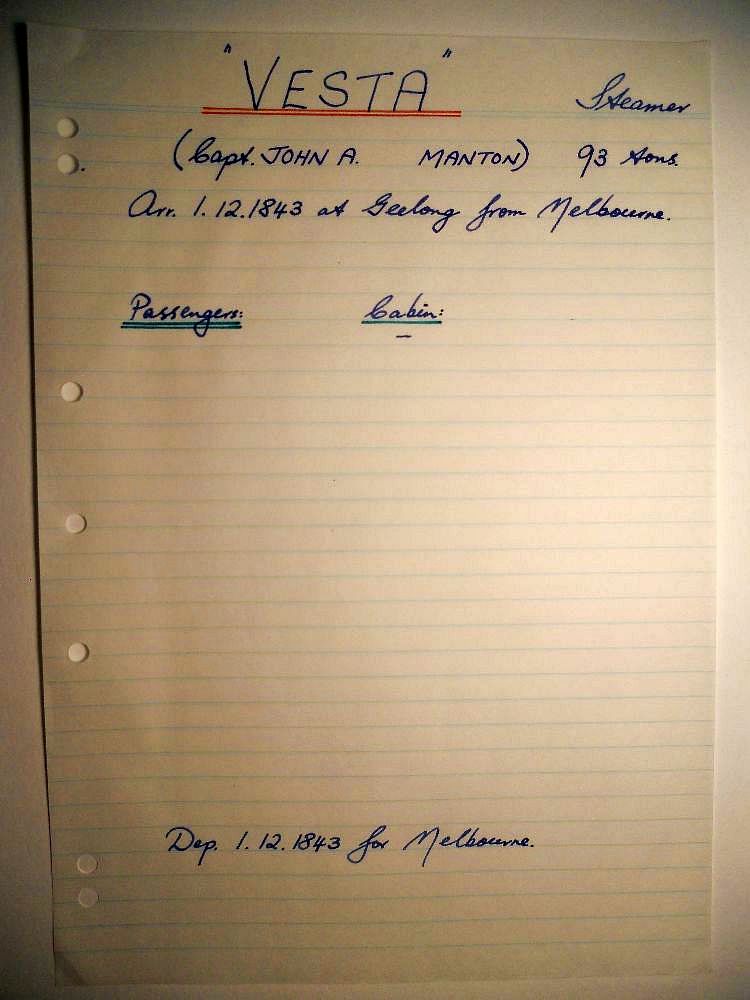 "VESTA" Steamer
(Capt. JOHN A. MANTON) 93 tons.
Arr. 1.12.1843 at Geelong from Melbourne.
Passengers: Cabin:
–
Dep. 1.12.1843 for Melbourne.